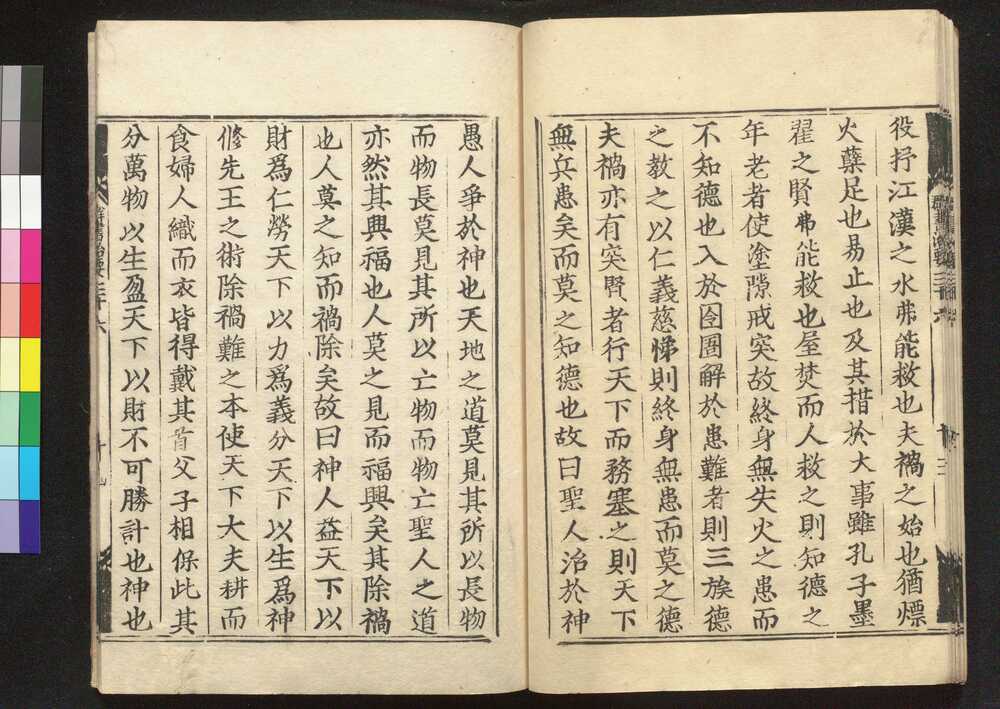 役抒江漢之水弗能救也夫禍之始也猶熛
火蘖足也易止也及其措於大事雖孔子墨
翟之賢弗能救也屋焚而人救之則知德之
年老者使塗隙戒突故終身無失火之患而
不知德也入於囹圄解於患難者則三族德
之教之以仁義慈悌則終身無患而莫之德
夫禍亦有突賢者行天下而務塞之則天下
無兵患矣而莫之知德也故曰聖人治於神
愚人爭於神也天地之道莫見其所以長物
而物長莫見其所以亡物而物亡聖人之道
亦然其興福也人莫之見而福興矣其除禍
也人莫之知而禍除矣故曰神人益天下以
財爲仁勞天下以力爲義分天下以生爲神
脩先王之術除禍難之本使天下大夫耕而
食婦人織而衣皆得戴其首父子相保此其
分萬物以生盈天下以財不可勝計也神也
群書治要三十六